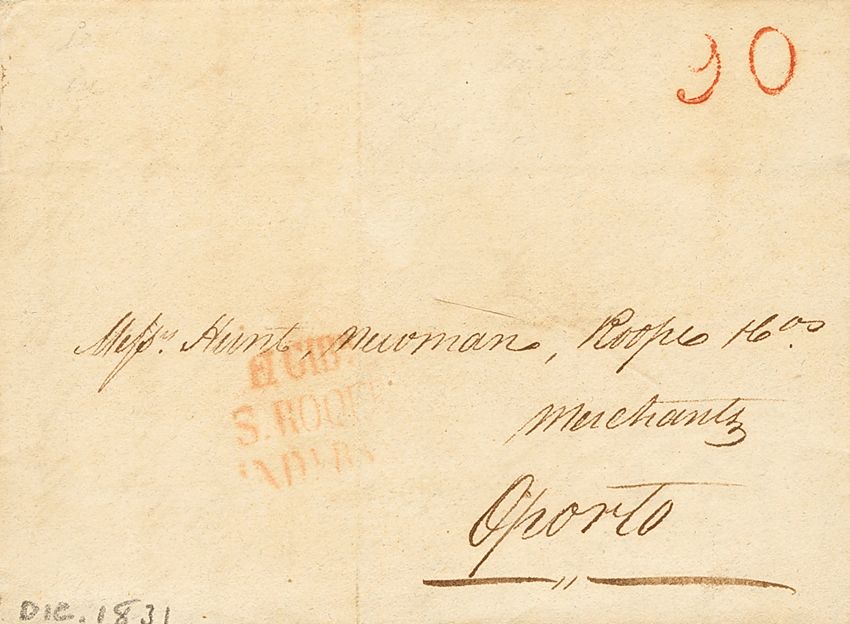 90
Messrs. Hunt, Newman, Roope & Cos.
Merchants
Oporto
S. ROQUE
DIC. 1831